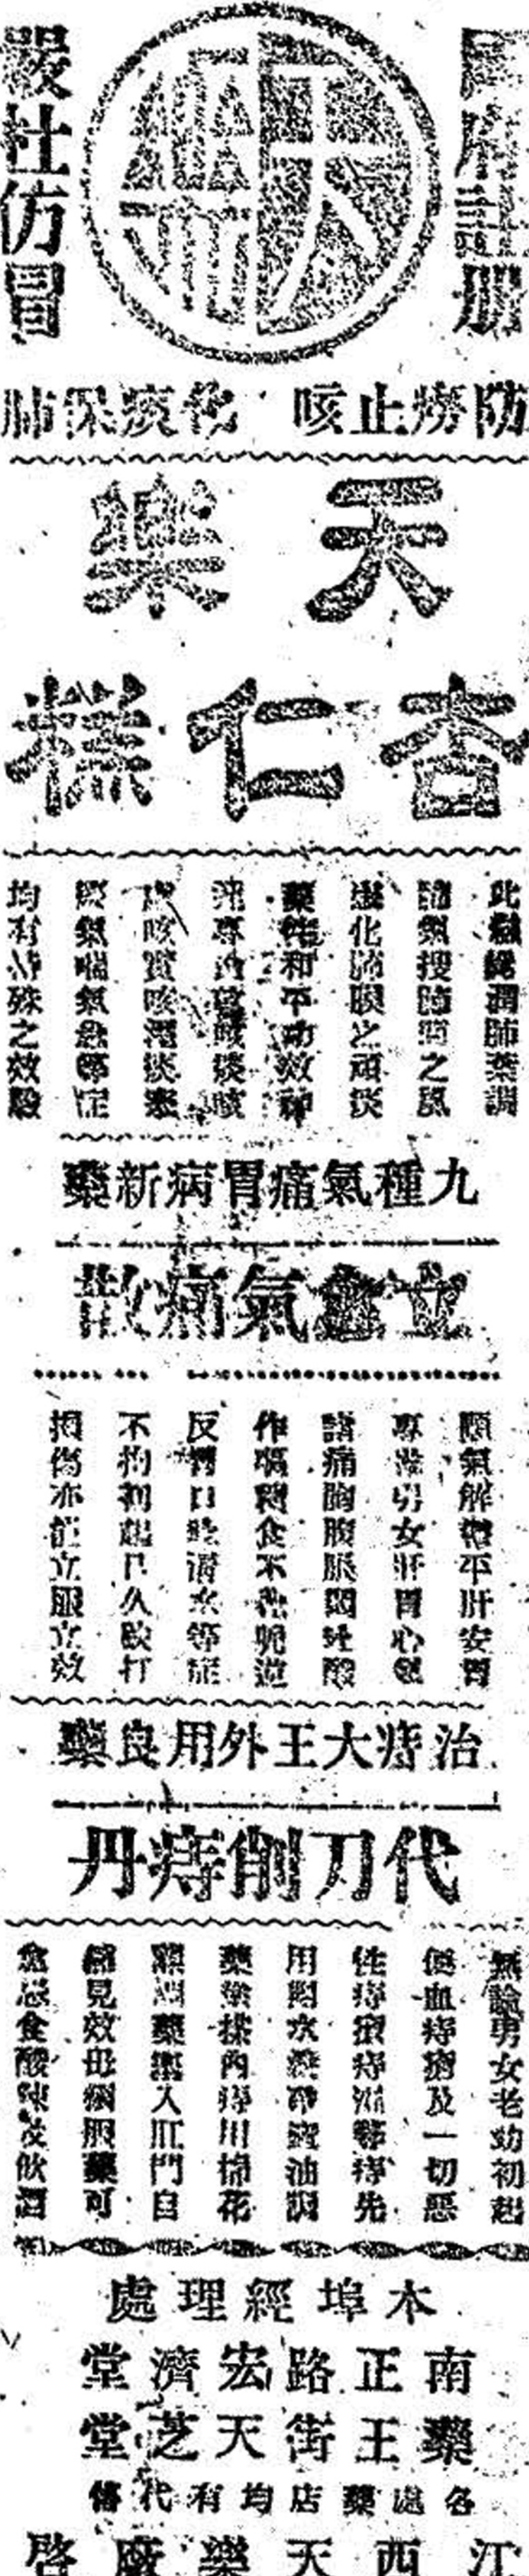 國府註册
嚴杜仿冒
天樂
防癆止咳 化痰保肺
天樂
杏仁糕
此糕純潤肺葉調
肺氣搜肺間之風
化肺膜之頑痰
藥性和平功效神
咳痰咳
咳實咳濕痰寒
痰氣喘氣急等症
均有特殊之效驗
九種氣痛胃病新藥
立愈氣痛散
順氣解鬱平肝安胃
專治男女肝胃心氣
諸痛胸腹脹悶吐酸
作噁積食不化呃逆
反胃口吐清水等症
不拘初起日久跌打
損傷亦能立服立效
治痔大王外用良藥
代刀削痔丹
無論男女老幼初起
便血痔瘡及一切惡
性痔瘡痔漏等痔先
用開水洗麻油調
藥塗搽內痔用棉花
藥塞入肛門自
能見效毋須服藥可
愈忌食酸辣及飲酒
本埠經理處
南正路宏濟堂
藥王街天芝堂
各處藥店均有代售
江西天樂廠啓